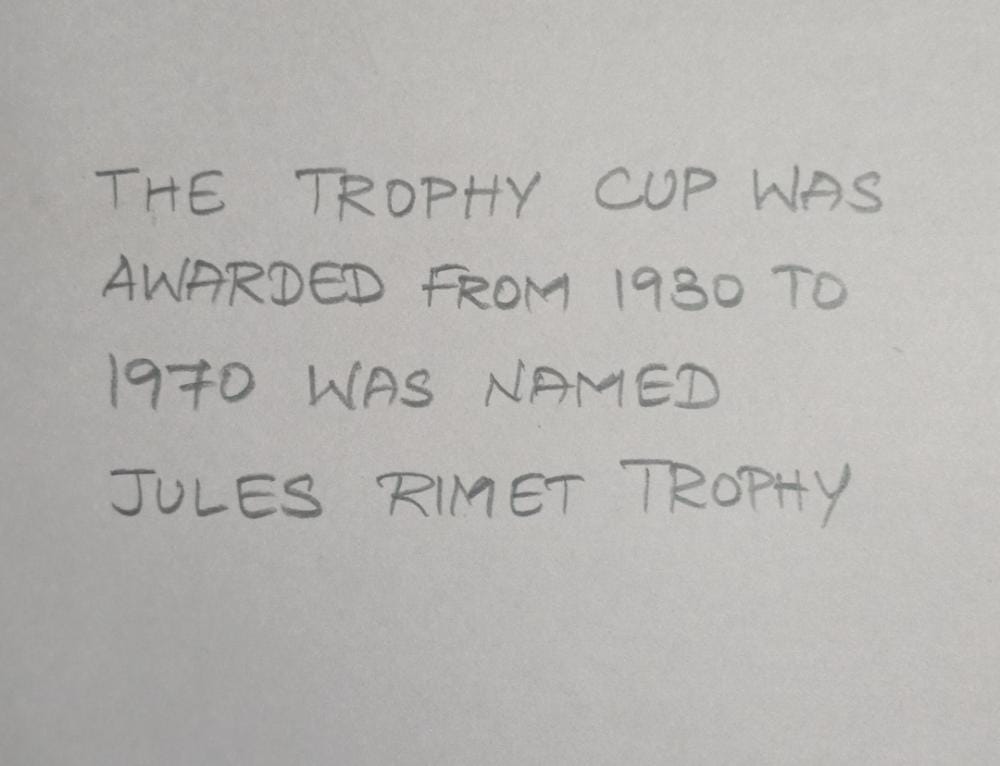 THE TROPHY CUP WAS
AWARDED FROM 1930 TO
1970 WAS NAMED
JULES RIMET TROPHY